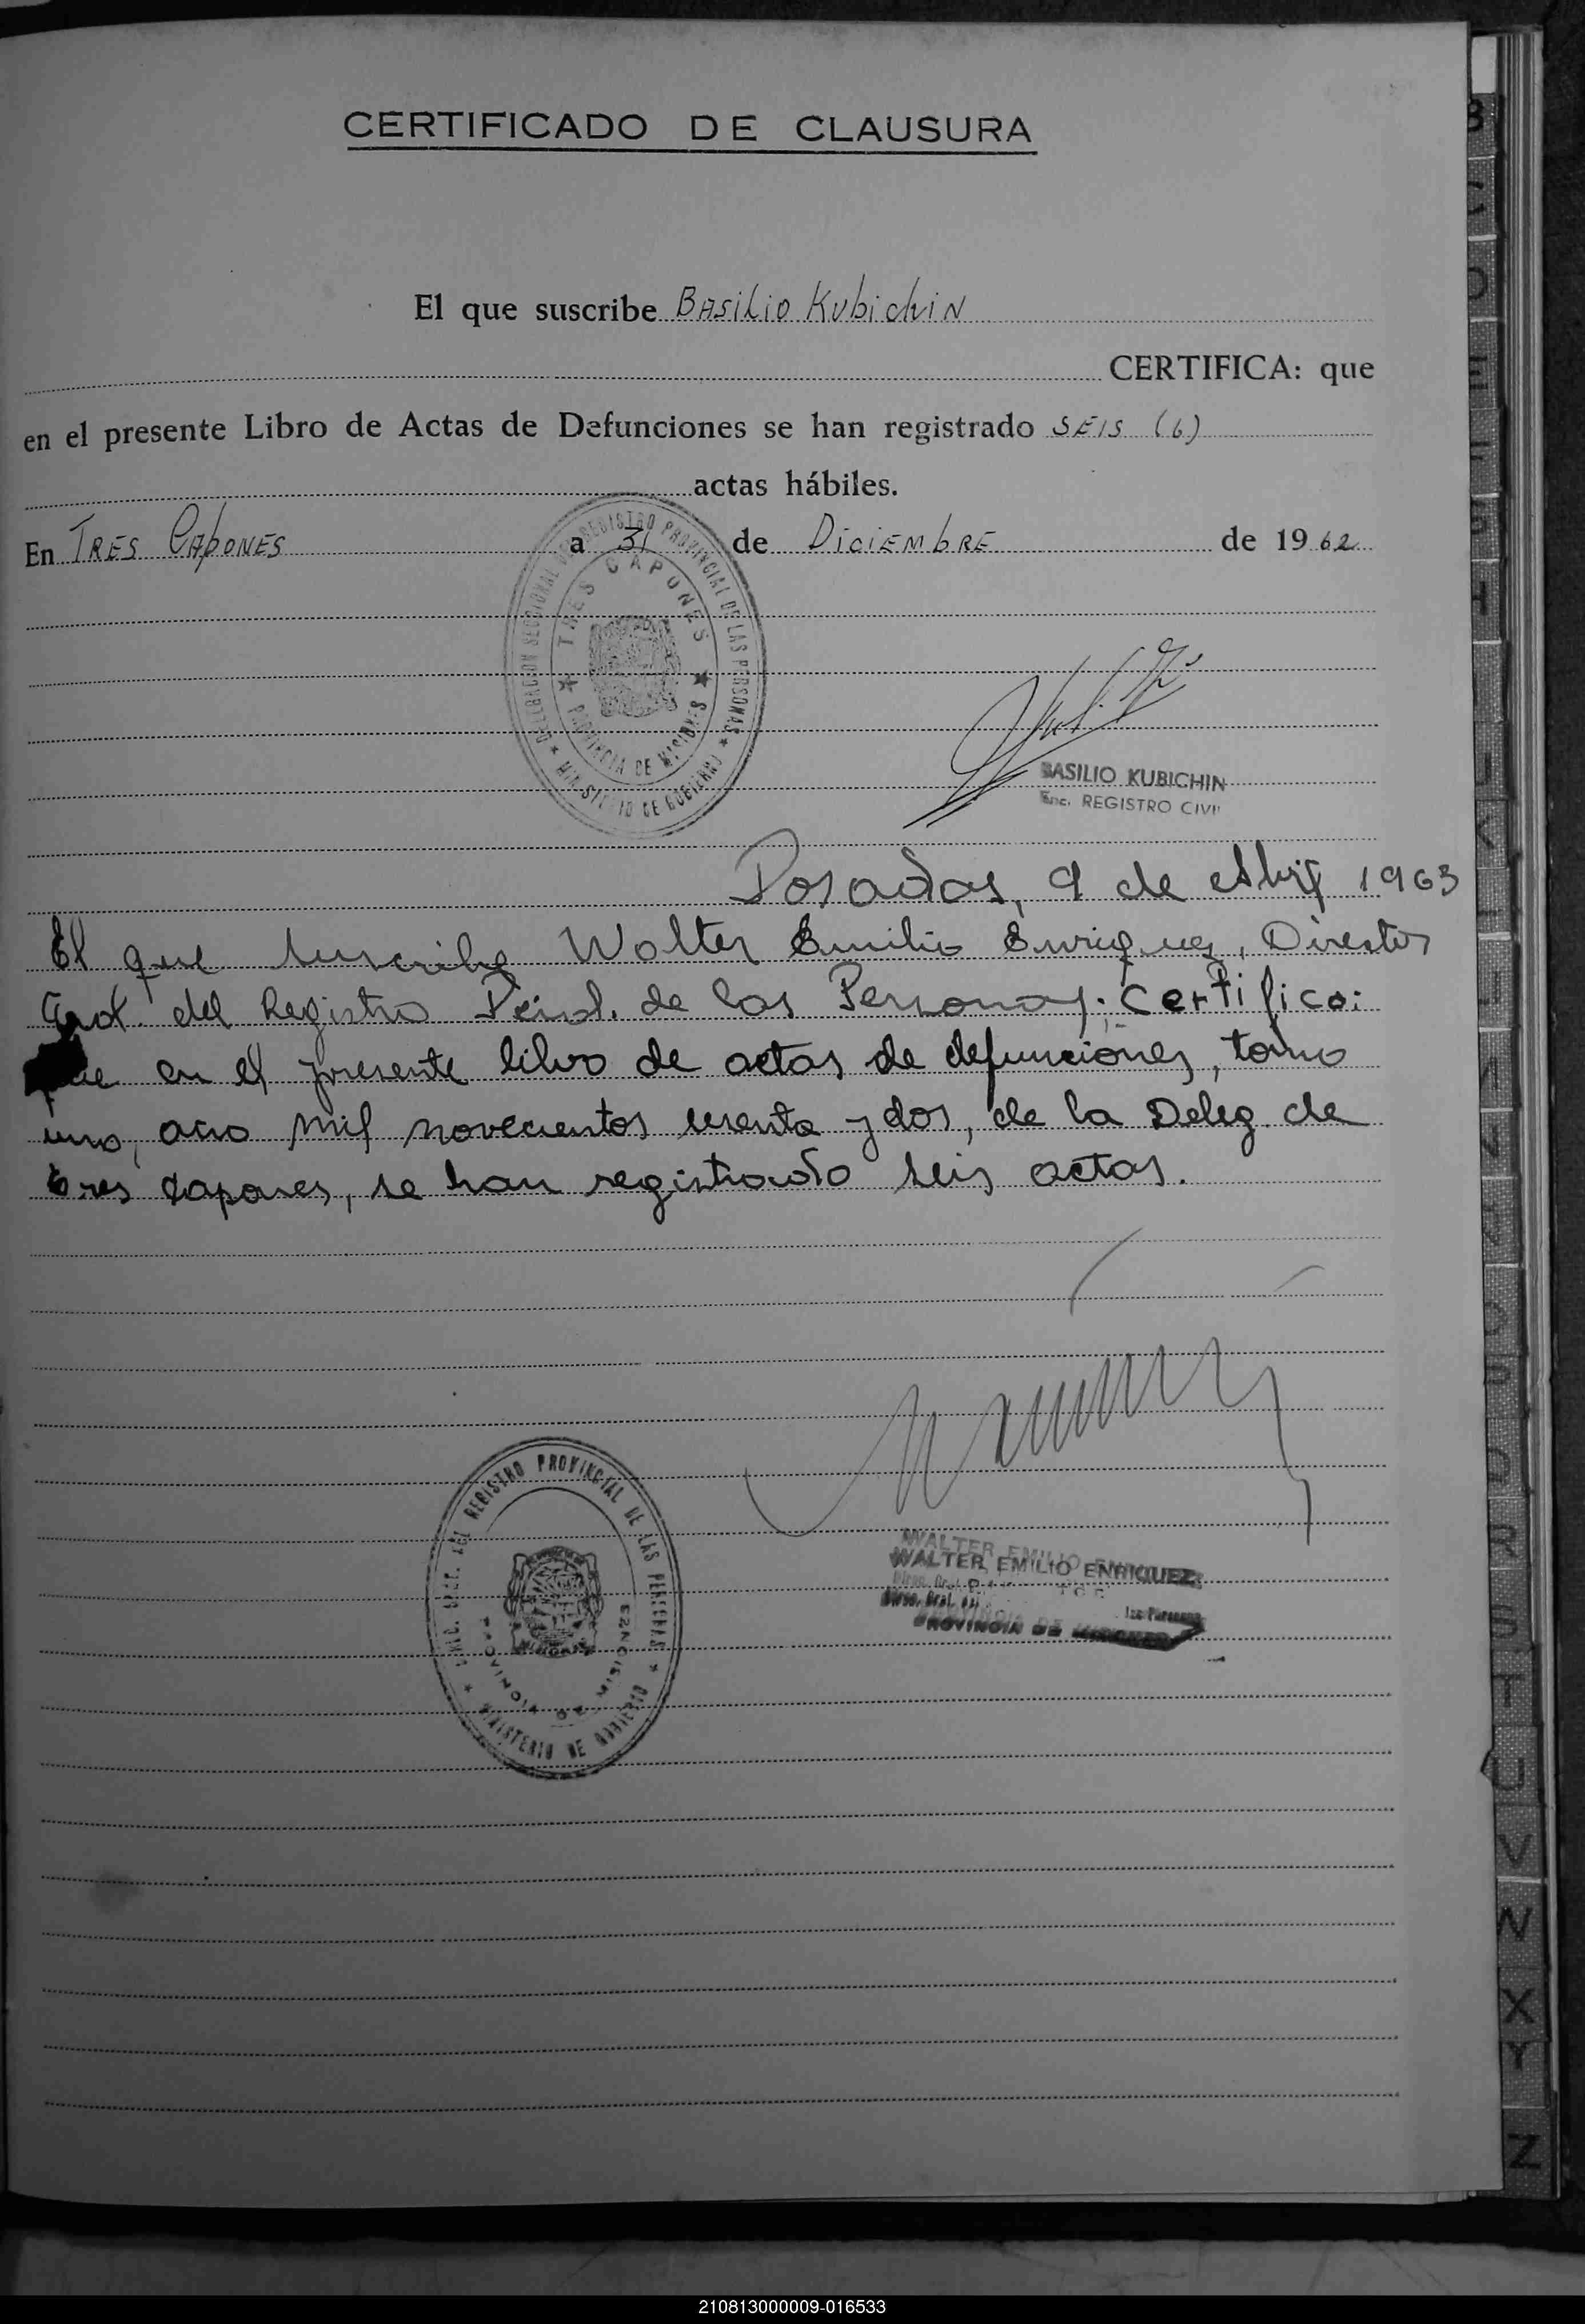 CERTIFICADO DE CLAUSURA
El que suscribe Basilio Kubichin
CERTIFICA: que
en el presente Libro de Actas de Defunciones se han registrado SEIS (6)
actas hábiles.
En Tres Capones a 31 de Diciembre de 1962
REGISTRO PROVINCIAL DE LAS PERSONAS ★ MINISTERIO DE GOBIERNO ★ DELEGACION SECCIONAL
★ TRES CAPONES ★ PROVINCIA DE MISIONES
BASILIO KUBICHIN
Enc. REGISTRO CIVIL
Posadas, 9 de Abril 1963
El que suscribe Walter Emilio Enriquez, Director
Gral. del Registro Pcial. de las Personas; Certifica:
que en el presente libro de actas de defunciones, tomo
uno, año mil novecientos sesenta y dos, de la Deleg. de
tres capones, se han registrado seis actas.
REGISTRO PROVINCIAL DE LAS PERSONAS ★ MINISTERIO DE GOBIERNO ★
PROVINCIA DE MISIONES
WALTER EMILIO ENRIQUEZ
WALTER EMILIO ENRIQUEZ
Direc. Gral.
PROVINCIA DE MISIONES
B
C
D
E
F
H
J
K
L
M
N
O
P
Q
R
S
T
U
V
W
X
Y
Z
210813000009-016533